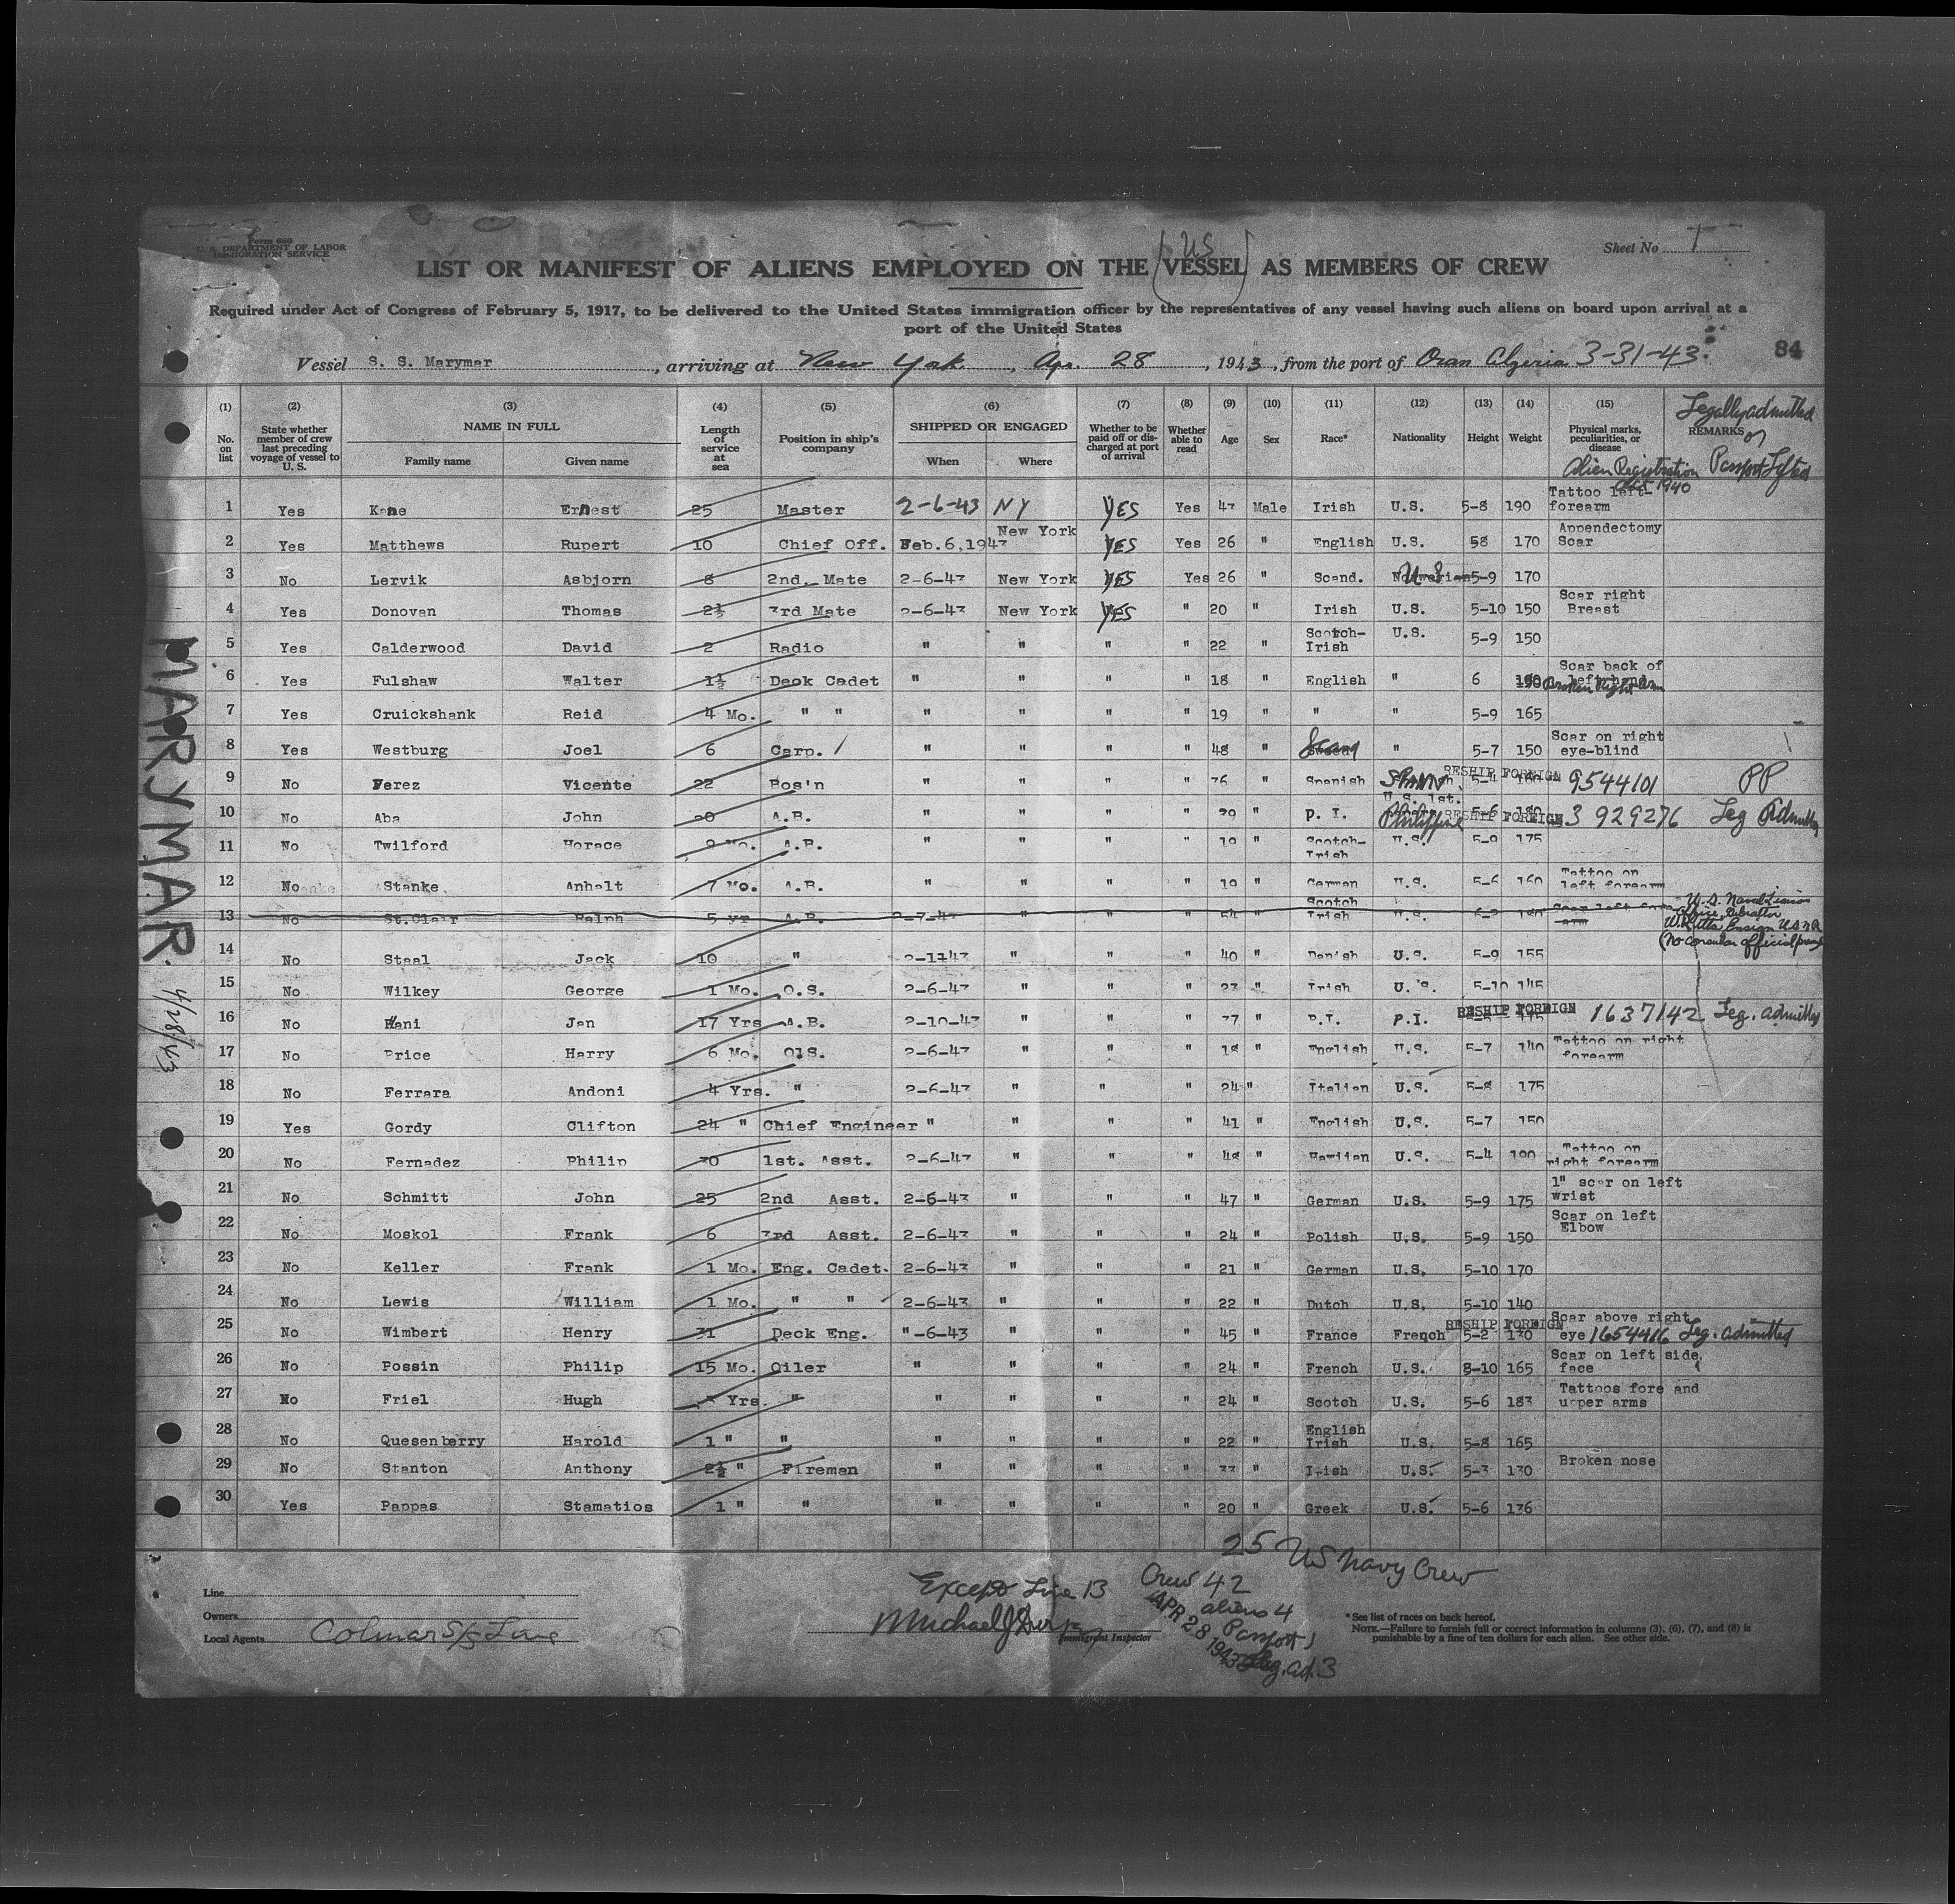 Form 680
U. S. DEPARTMENT OF LABOR
IMMIGRATION SERVICE
Sheet No. 1
LIST OR MANIFEST OF ALIENS EMPLOYED ON THE (US VESSEL) AS MEMBERS OF CREW
Required under Act of Congress of February 5, 1917, to be delivered to the United States immigration officer by the representatives of any vessel having such aliens on board upon arrival at a
port of the United States
Vessel S. S. Marymar, arriving at New York, Apr. 28, 1943, from the port of Oran Algeria 3-31-43. 84
(1) No. on list
(2) State whether member of crew last preceding voyage of vessel to U. S.
(3) NAME IN FULL Family name Given name
(4) Length of service at sea
(5) Position in ship's company
(6) SHIPPED OR ENGAGED When Where
(7) Whether to be paid off or discharged at port of arrival
(8) Whether able to read
(9) Age
(10) Sex
(11) Race*
(12) Nationality
(13) Height
(14) Weight
(15) Physical marks, peculiarities, or disease
Alien Registration Act 1940
Legally admitted
REMARKS or
Passport Lifted
1 Yes Kane Ernest 25 Master 2-6-43 NY YES Yes 47 Male Irish U.S. 5-8 190 Tattoo left- forearm
2 Yes Matthews Rupert 10 Chief Off. Feb.6,1943 New York YES Yes 26 " English U.S. 58 170 Appendectomy Scar
3 No Lervik Asbjorn 8 2nd. Mate 2-6-43 New York YES Yes 26 " Scand. U S 5-9 170
4 Yes Donovan Thomas 2½ 3rd Mate 2-6-43 New York YES " 20 " Irish U.S. 5-10 150 Scar right Breast
5 Yes Calderwood David 2 Radio " " " " 22 " Scotch-Irish U.S. 5-9 150
6 Yes Fulshaw Walter 1½ Deck Cadet " " " " 18 " English " 6 Scar back of left hand Broken Right Arm
7 Yes Cruickshank Reid 4 Mo. " " " " " " 19 " " " 5-9 165
8 Yes Westburg Joel 6 Carp. " " " " 48 " Scand " 5-7 150 Scar on right eye-blind
9 No Perez Vicente 22 Bos'n " " " " 36 " Spanish SPAIN RESHIP FOREIGN 5-4 9544101 PP
10 No Aba John A.B. " " " " 39 " P. I. U.S. 1st. Philippine RESHIP FOREIGN 5-6 3 929276 Leg Admitted
11 No Twilford Horace A.B. " " " " 19 " Scotch-Irish U.S. 5-9 175
12 No Stanke Anhalt 7 Mo. A.B. " " " " 19 " German U.S. 5-6 160 Tattoo on left forearm
13 No St.Clair Ralph 5 yr A.B. 2-7-43 " " " 54 " Scotch Irish U.S. Scar left fore arm U.S. Naval Liaison Office, Gibraltar Ensign USNR (No consular official
14 No Staal Jack 10 " " " " 40 " Danish U.S. 5-9 155
15 No Wilkey George 1 Mo. O.S. 2-6-43 " " " 23 " Irish U.S. 5-10 145
16 No Hani Jan 17 Yrs A.B. 2-10-43 " " " 37 " P.I. P.I. RESHIP FOREIGN 1637142 Leg. admitted
17 No Price Harry 6 Mo. O.S. 2-6-43 " " " 18 " English U.S. 5-7 140 Tattoo on right forearm
18 No Ferrara Andoni 4 Yrs. " 2-6-43 " " " 24 " Italian U.S. 5-8 175
19 Yes Gordy Clifton 24 " Chief Engineer " " " " 41 " English U.S. 5-7 150
20 No Fernadez Philip 30 1st. Asst. 2-6-43 " " " 48 " U.S. 5-4 190 Tattoo on right forearm
21 No Schmitt John 25 2nd Asst. 2-6-43 " " " 47 " German U.S. 5-9 175 1" scar on left wrist
22 No Moskol Frank 6 3rd Asst. 2-6-43 " " " 24 " Polish U.S. 5-9 150 Scar on left Elbow
23 No Keller Frank 1 Mo. Eng. Cadet. 2-6-43 " " " 21 " German U.S. 5-10 170
24 No Lewis William 1 Mo. " " 2-6-43 " " " 22 " Dutch U.S. 5-10 140
25 No Wimbert Henry 31 Deck Eng. "-6-43 " " " 45 " France French RESHIP FOREIGN 5-2 130 Scar above right eye 1654416 Leg. admitted
26 No Possin Philip 15 Mo. Oiler " " " " 24 " French U.S. 8-10 165 Scar on left side, face
27 No Friel Hugh Yrs. " " " " " 24 " Scotch U.S. 5-6 183 Tattoos fore and upper arms
28 No Quesenberry Harold 1 " " " " " " 22 " English Irish U.S. 5-8 165
29 No Stanton Anthony 2½ " Fireman " " " " 33 " Irish U.S. 5-3 130 Broken nose
30 Yes Pappas Stamatios 1 " " " " " " 20 " Greek U.S. 5-6 136
MARYMAR. 4/28/43
25 US Navy Crew
Except Line 13
Crew 42
aliens 4
APR 28 1943
Passport 1
Leg. ad. 3
Line
Owners
Local Agents Colmar S/S Line
Michael J
Immigrant Inspector
* See list of races on back hereof.
NOTE.—Failure to furnish full or correct information in columns (3), (6), (7), and (8) is
punishable by a fine of ten dollars for each alien. See other side.